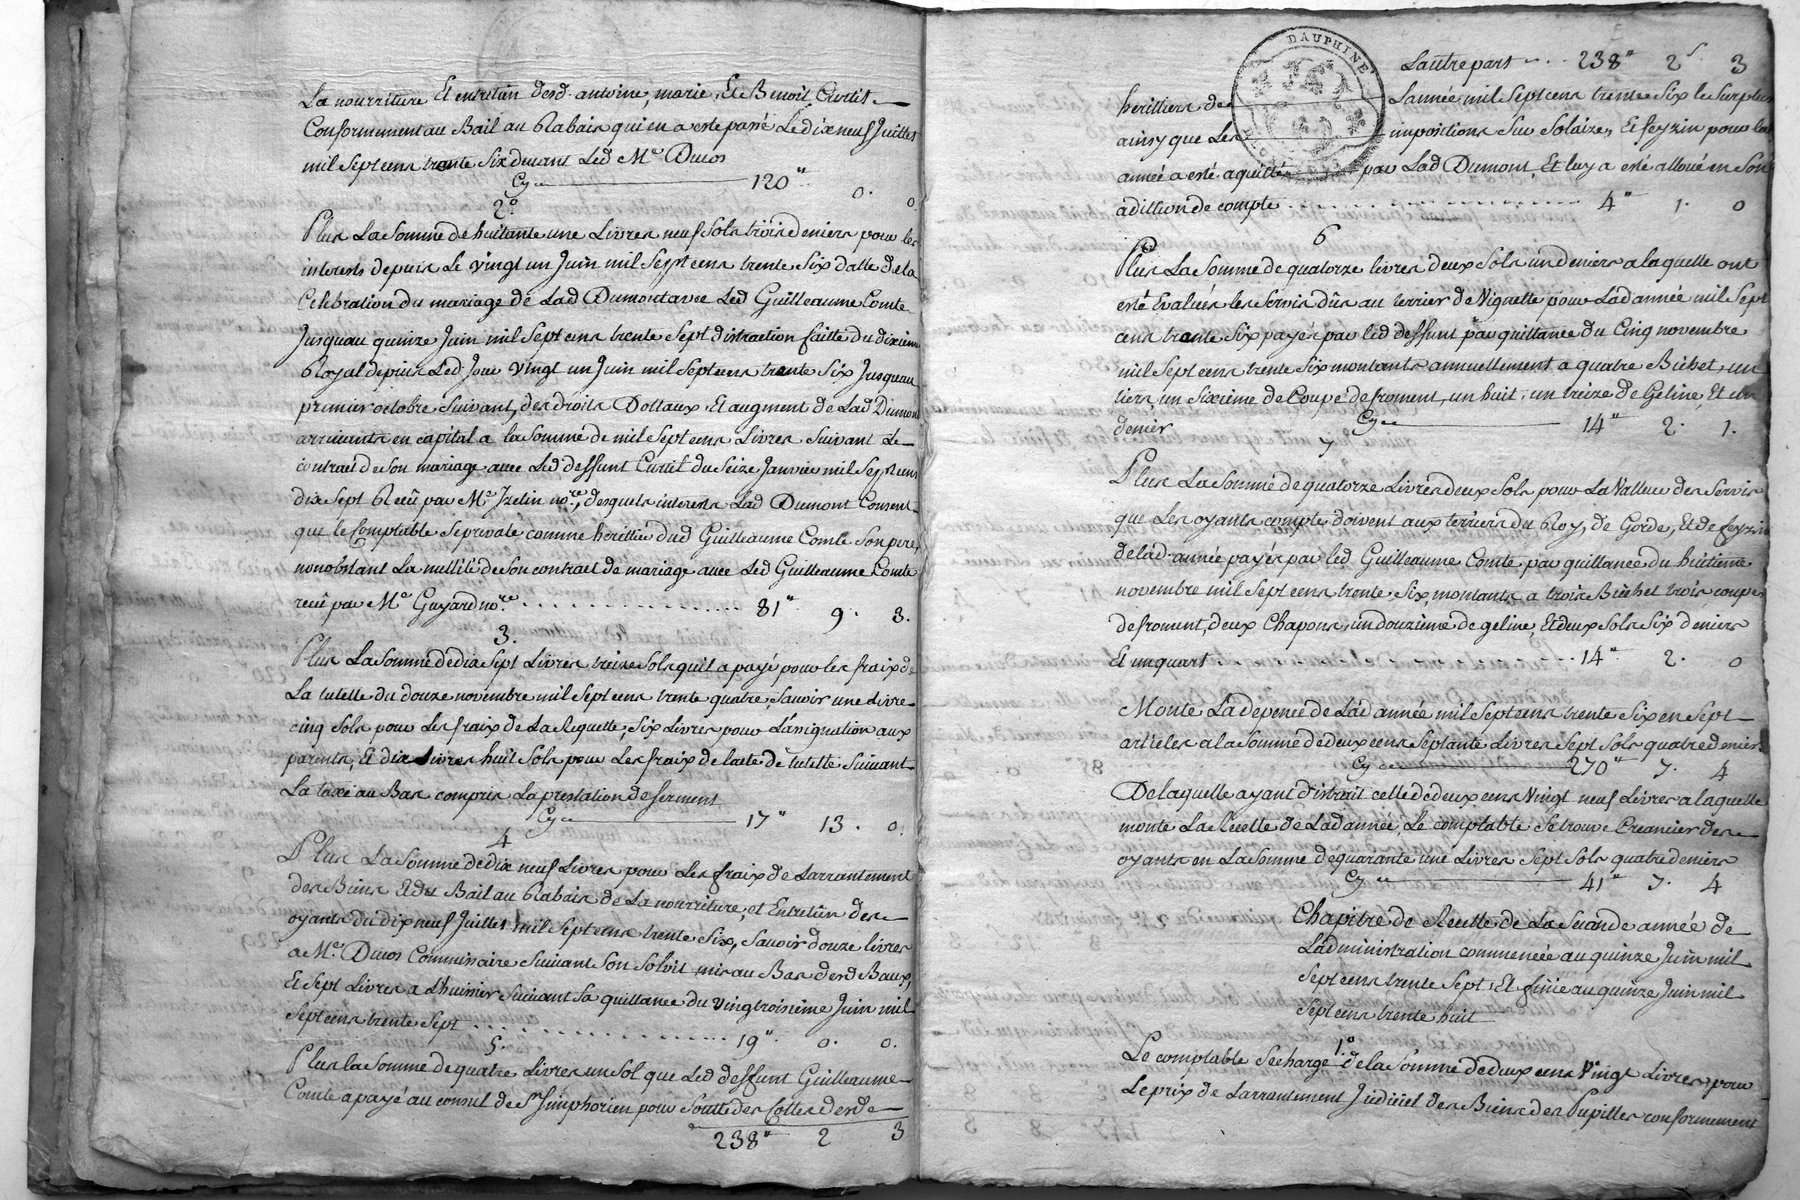 La nourriture Et entretien desd. antoine, marie, Et Benoit Curtil
Conformement au Bail au Rabais qui en a esté passé Le dix neuf Juillet
mil sept cens trente six devant Led Me Ducos
Cy 120" 0. 0
2o.
Plus La Somme de huitante une Livres neuf Sols trois deniers pour les
interests depuis Le vingt un Juin mil sept cens trente six datte de la
Celebration du mariage de Lad Dumont avec Led Guilleaume Comte
Jusqu'au quinze Juin mil sept cens trente sept distraction faitte du dixieme
Royal depuis Led Jour vingt un Juin mil sept cens trente six Jusqu'au
premier octobre suivant, des droits Dottaux Et augment de Lad Dumont
arrivants en capital a la somme de mil sept cens Livres suivant Le
contract de Son mariage avec Led deffunt Curtil du seize Janvier mil sept cens
dix sept Receû par Me Izelin nore, desquels interests Lad Dumont Consent
que le Comptable se prevale comme heritier dud Guilleaume Comte Son pere,
nonobstant La nullité de Son contract de mariage avec Led Guilleaume Comte
receû par Me Guyard nore. 81" 9. 3.
3.
Plus La Somme de dix sept Livres treize Sols qu'il a payé pour les fraix de
La tutelle du douze novembre mil sept cens trente quatre, Savoir une Livre
cinq Sols pour Les fraix de La Requette, Six Livres pour L'assignation aux
parents, Et dix Livres huit Sols pour Les fraix de l'acte de tutelle Suivant
La taxe au Bas compris La prestation de serment
Cy 17" 13. 0.
4
Plus La Somme de dix neuf Livres pour Les fraix de Larrantement
des Biens Et du Bail au Rabais de La nourriture, et Entretien des
oyants du dix neuf Juillet mil sept cens trente six, Savoir douze livres
a Me. Ducos Commissaire Suivant Son Solvit mis au Bas desd Baux,
Et Sept Livres a Lhuissier Suivant Sa quittance du vingt troisieme Juin mil
sept cens trente sept 19" 0. 0.
5.
Plus la Somme de quatre Livres un Sol que Led deffunt Guilleaume
Comte a payé au consul de St Simphorien pour Soutte des Cottes desd
238" 2 3
DAUPHINE
Lautre part 238" 2s. 3
heritiers de L'année mil sept cens trente six le surplus
ainsy que Les impositions sur Solaize, Et feyzin pour lad
année a esté aquitté par Lad Dumont, Et luy a esté alloué en Son
adition de compte 4" 1. 0
6
Plus La Somme de quatorze livres deux Sols un deniers a laquelle ont
esté Evalués les Servis dûs au terrier de Vignette pour Lad année mil sept
cens trente six payés par led deffunt par quittance du Cinq novembre
mil sept cens trente six montants annuellement a quatre Bichet, un
tiers, un Sixieme de Coupe de froment, un huit, un treize de Geline, Et un
denier Cy 14" 2. 1.
7
Plus La Somme de quatorze Livres deux Sols pour La Valleur des Servis
que Les oyants compte doivent aux terriers du Roy, de Gorde, Et de feyzin
de lad. année payés par led Guilleaume Comte par quittance du huitieme
novembre mil sept cens trente six, montants a trois Bichet trois coupes
de froment, deux Chapons, un douzieme de geline, Et deux Sols Six deniers
Et un quart 14" 2. 0
Monte La depence de Lad année mil sept cens trente six en sept
articles a la Somme de deux cens Septante Livres Sept Sols quatre deniers
Cy 270" 7. 4
De laquelle ayant distrait celle de deux cens Vingt neuf Livres a laquelle
monte La Recette de Lad année, Le comptable Se trouve Creancier des
oyants en La Somme de quarante une Livres Sept Sols quatre deniers
Cy 41" 7. 4
Chapitre de Recette de La Seconde année de
Ladministration commencée au quinze Juin mil
sept cens trente sept, Et finie au quinze Juin mil
sept cens trente huit
1.o
Le comptable Se charge de la Somme de deux cens Vingt Livres pour
Le prix de Larrantement Judiciel des Biens des Pupilles conformement